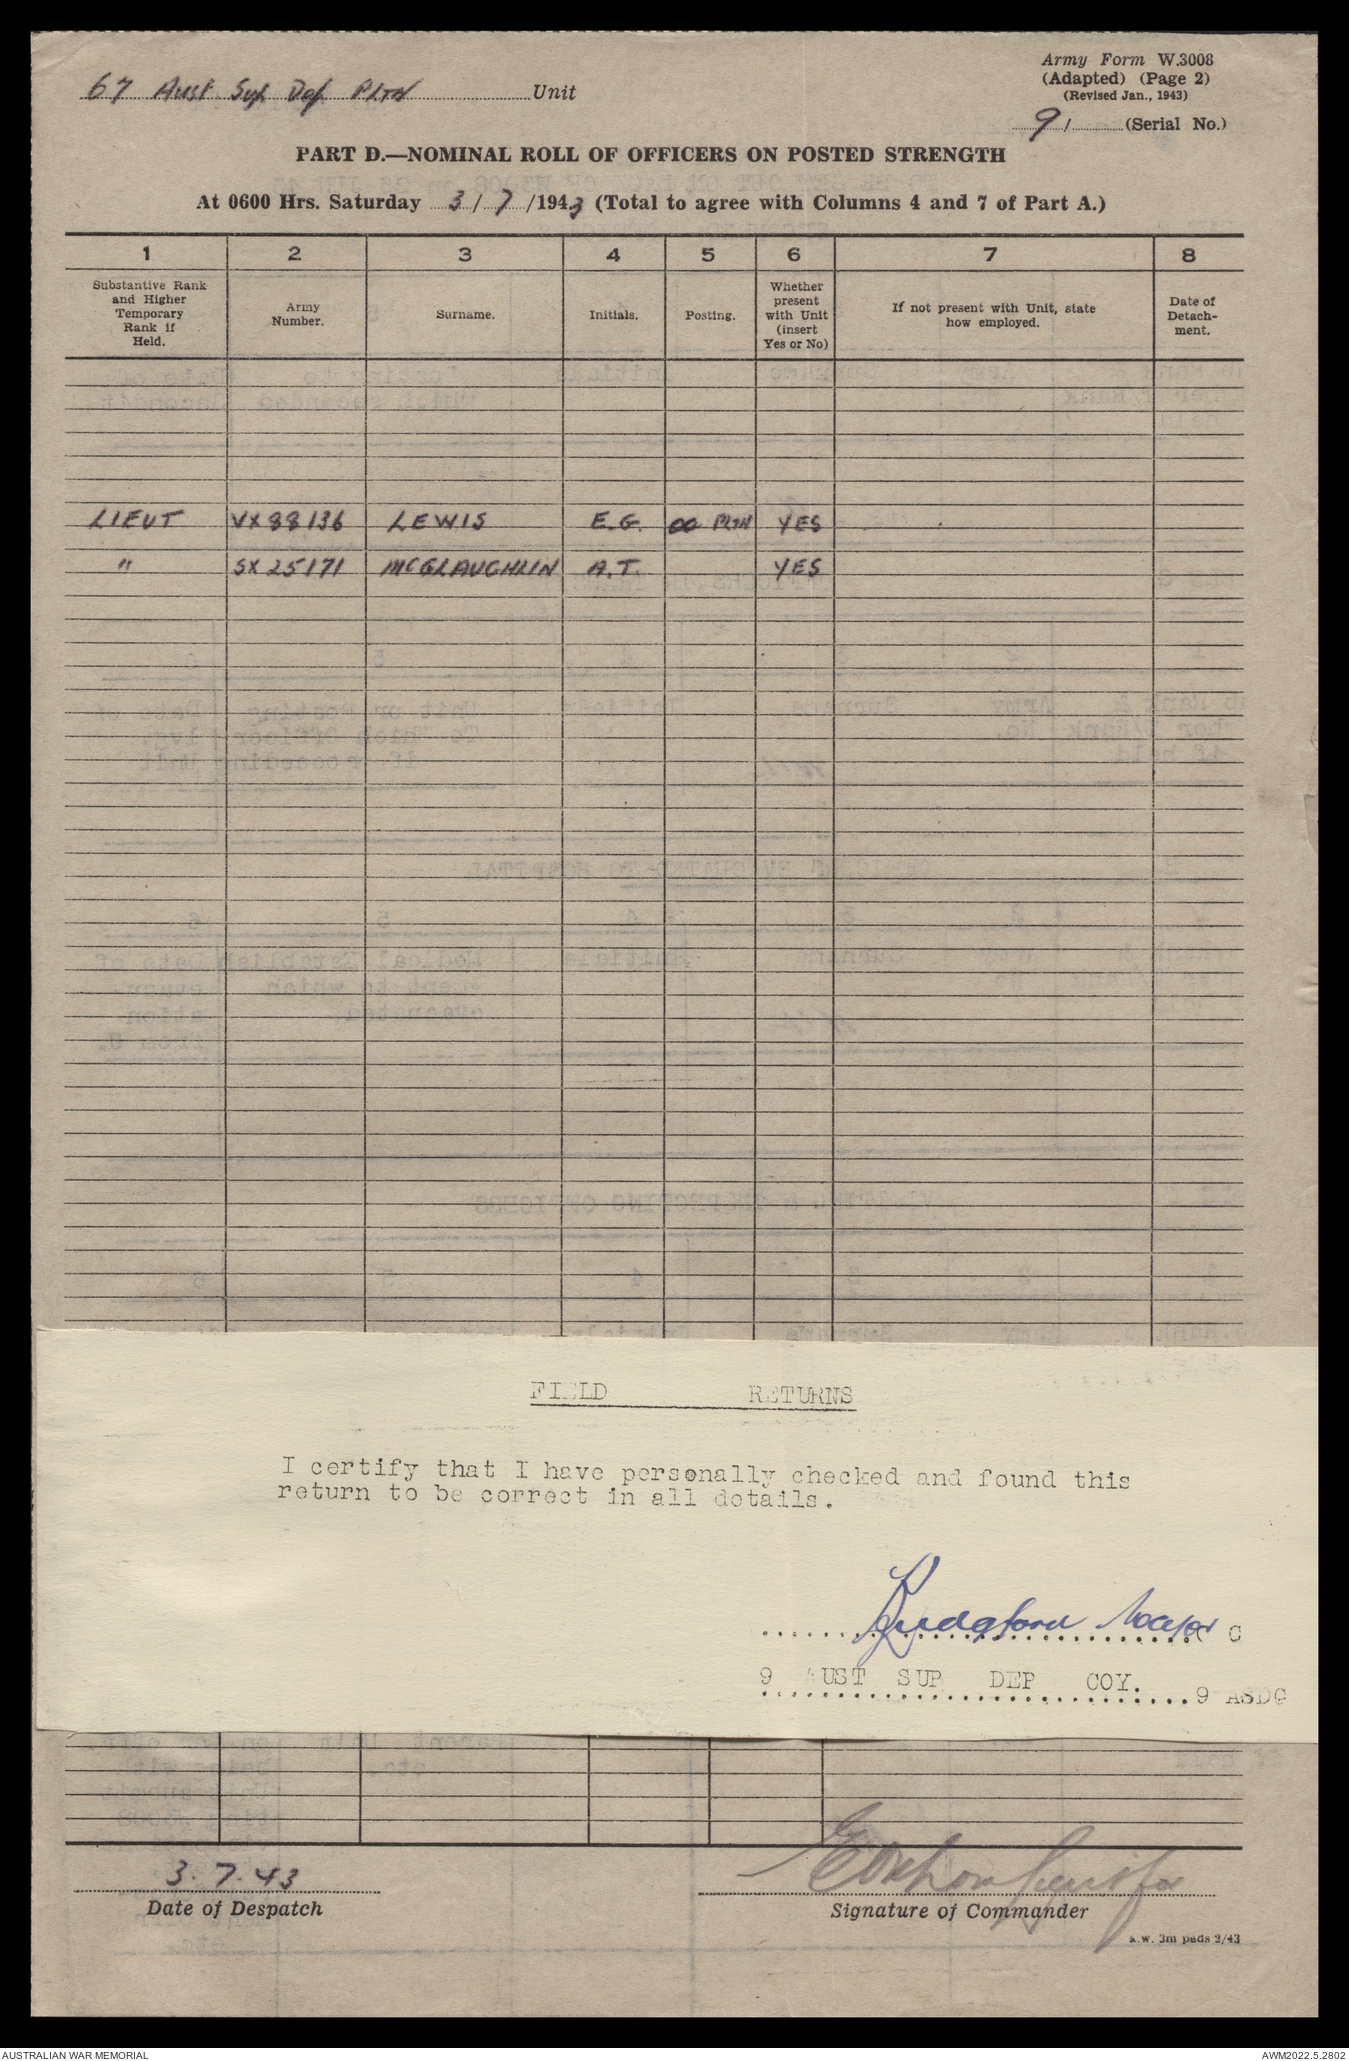 Army Form W.3008
(Adapted) (Page 2)
(Revised Jan., 1943)
67 Aust Sup Dep Pltn Unit
9/ (Serial No.)
PART D.—NOMINAL ROLL OF OFFICERS ON POSTED STRENGTH
At 0600 Hrs. Saturday 3/7/1943 (Total to agree with Columns 4 and 7 of Part A.)
1 2 3 4 5 6 7 8
Substantive Rank and Higher Temporary Rank if Held.
Army Number.
Surname.
Initials.
Posting.
Whether present with Unit (insert Yes or No)
If not present with Unit, state how employed.
Date of Detach-ment.
LIEUT VX88136 LEWIS E.G. OC PLTN YES
" SX25171 MCGLAUGHLIN A.T. YES
FIELD RETURNS
I certify that I have personally checked and found this
return to be correct in all details.
Major
O C
9 AUST SUP DEP COY.
9 ASDC
3.7.43
Date of Despatch
Signature of Commander
a.w. 3m pads 2/43
AUSTRALIAN WAR MEMORIAL
AWM2022.5.2802